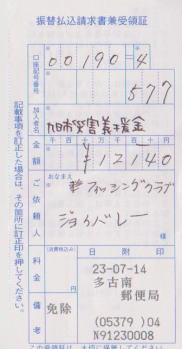 振替払込請求書兼受領証
口座記号番号
00190=4
577
加入者名
金額
千 百 十 万 千 百 十 円
¥12140
ご依頼人
おなまえ
フィッシングクラブ
ジョイバレー
様
料金
(消費税込み)
日附印
23-07-14
多古南
郵便局
備考
免除
(05379)04
N91230008
記載事項を訂正した場合は、その箇所に訂正印を押してください。